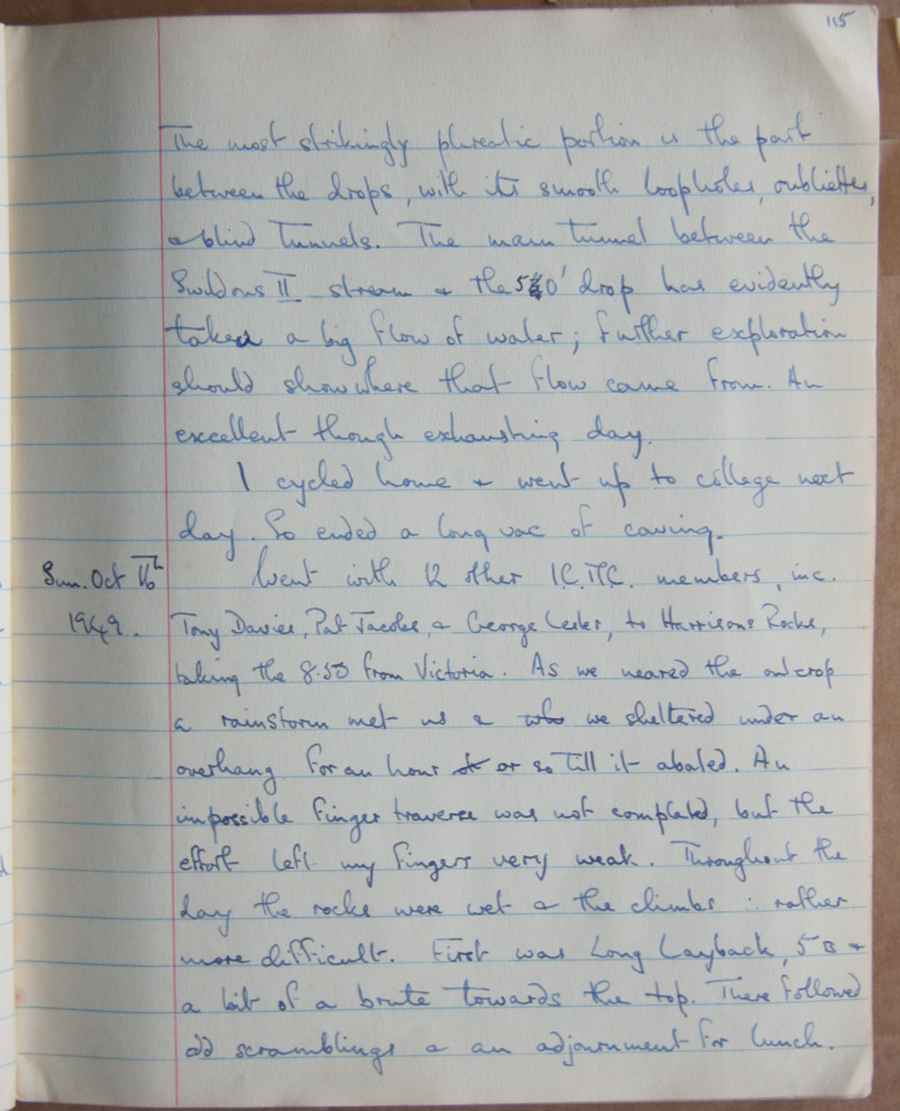 115
The most strikingly phreatic portion is the part
between the drops, with its smooth loopholes, oubliettes,
& blind tunnels. The main tunnel between the
Swildons II stream & the 50' drop has evidently
taken a big flow of water; further exploration
should show where that flow came from. An
excellent though exhausting day.
I cycled home & went up to college next
day. So ended a long vac of caving.
Sun. Oct 16th Went with 12 other I.C.M.C. members, inc.
1949. Tony Davies, Pat Jacobs, & George Lester, to Harrisons Rocks,
taking the 8.50 from Victoria. As we neared the outcrop
a rainstorm met us & we sheltered under an
overhang for an hour or so till it abated. An
impossible finger traverse was not completed, but the
effort left my fingers very weak. Throughout the
day the rocks were wet & the climbs ∴ rather
more difficult. First was Long Layback, 5B &
a bit of a brute towards the top. There followed
odd scramblings & an adjournment for lunch.